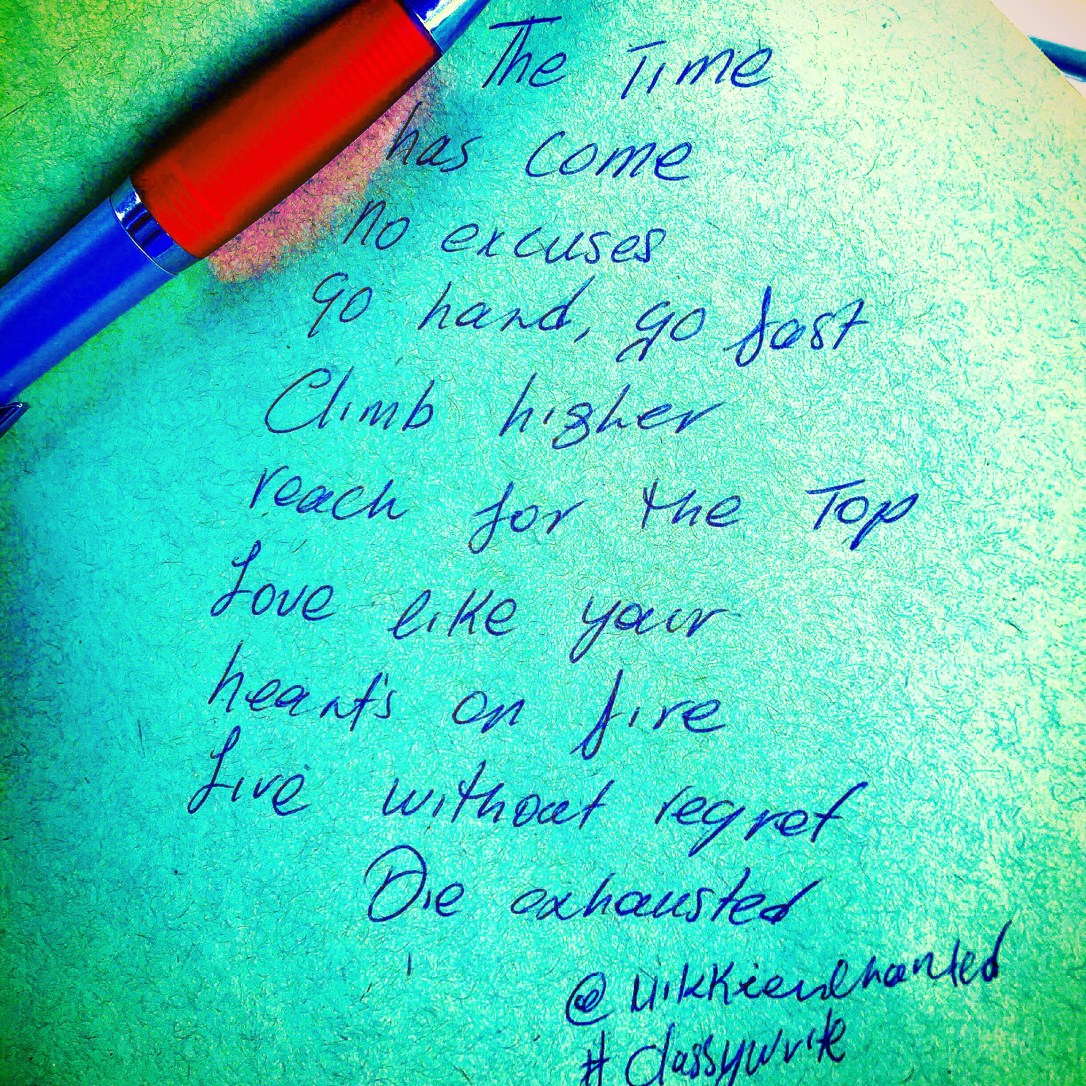 The Time
has come
no excuses
go hard, go fast
Climb higher
reach for the Top
Love like your
heart's on fire
Live without regret
Die exhausted
@Nikkienchanted
#classywrite